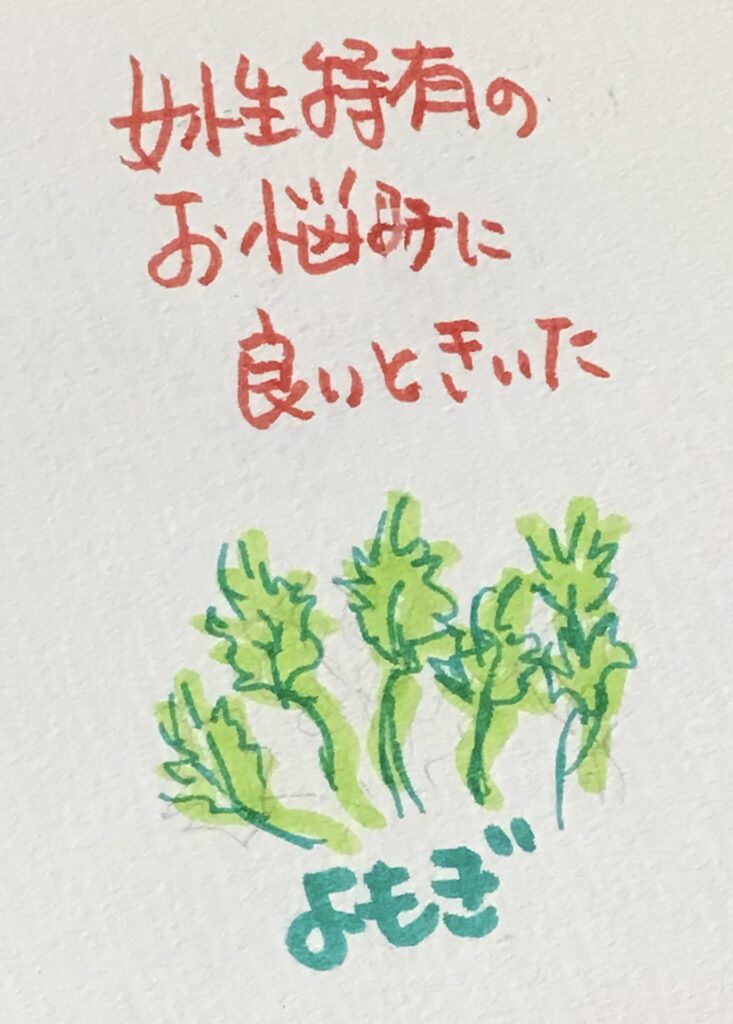 女性特有の
お悩みに
良いときいた
よもぎ